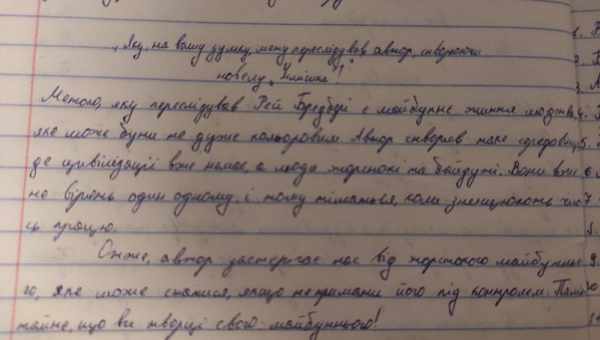 „Яку, на вашу думку, мету переслідував автор, створюючи
новелу „Усмішка"?"
Метою, яку переслідував Рей Бредбері є майбутнє життя людства,
яке може бути не дуже кольоровим. Автор створив таке середовище,
де цивілізації вже немає, а люди жорстокі та байдужі. Вони вже
не вірять один одному і тому тішаться, коли знищюють чию
сь працю.
Отже, автор застерігає нас від жорстокого майбутньо
го, яке може статися, якщо не тримати його під контролем. Памя
тайте, що ви творці свого майбутнього!